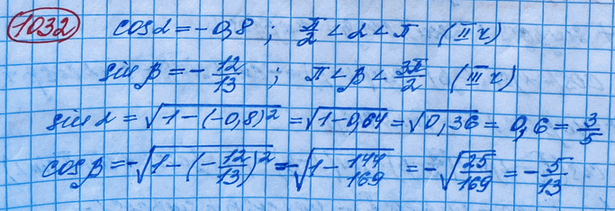 1032 cos α = -0,8 ; π/2 < α < π (II ч)
sin β = -12/13 ; π < β < 3π/2 (III ч)
sin α = √(1-(-0,8)²) = √(1-0,64) = √(0,36) = 0,6 = 3/5
cos β = -√(1-(-12/13)²) = -√(1-144/169) = -√(25/169) = -5/13